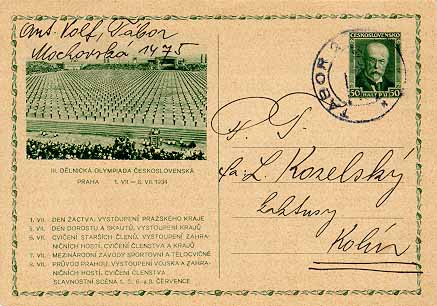 Ant. Volf, Tábor
Mochovská 1475
ČESKOSLOVENSKO
50 HALÉŘŮ 50
TÁBOR
III. DĚLNICKÁ OLYMPIADA ČESKOSLOVENSKÁ
PRAHA 1. VII.–8. VII. 1934
1. VII. DEN ŽACTVA: VYSTOUPENÍ PRAŽSKÉHO KRAJE
5. VII. DEN DOROSTU A SKAUTŮ, VYSTOUPENÍ KRAJŮ
6. VII. CVIČENÍ STARŠÍCH ČLENŮ, VYSTOUPENÍ ZAHRA-
NIČNÍCH HOSTÍ, CVIČENÍ ČLENSTVA A KRAJŮ
7. VII. MEZINÁRODNÍ ZÁVODY SPORTOVNÍ A TĚLOCVIČNÉ
8. VII. PRŮVOD PRAHOU, VYSTOUPENÍ VOJSKA A ZAHRA-
NIČNÍCH HOSTÍ, CVIČENÍ ČLENSTVA
SLAVNOSTNÍ SCÉNA 1. 5. 6. a 8. ČERVENCE
P. T.
Fa. L. Kozelský
Kolín